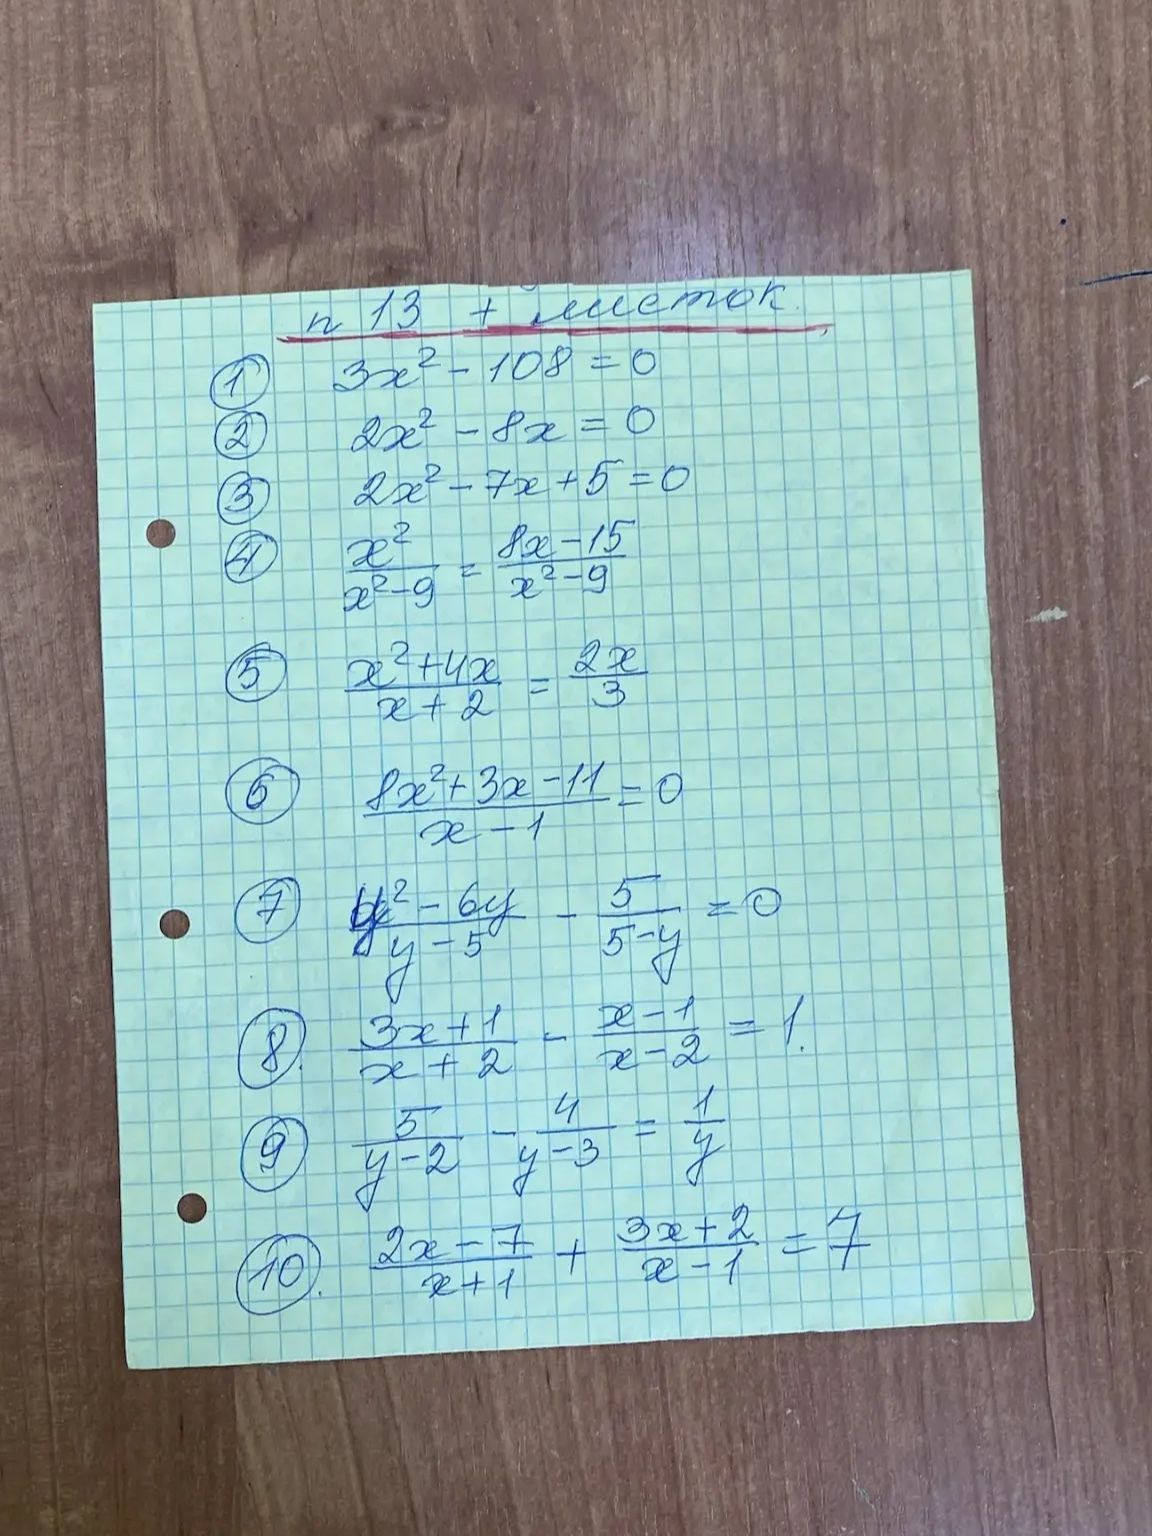 п 13 + листок.
① 3x² - 108 = 0
② 2x² - 8x = 0
③ 2x² - 7x + 5 = 0
④ x²/(x² - 9) = (8x - 15)/(x² - 9)
⑤ (x² + 4x)/(x + 2) = 2x/3
⑥ (8x² + 3x - 11)/(x - 1) = 0
⑦ (y² - 6y)/(y - 5) - 5/(5 - y) = 0
⑧. (3x + 1)/(x + 2) - (x - 1)/(x - 2) = 1.
⑨ 5/(y - 2) - 4/(y - 3) = 1/y
⑩. (2x - 7)/(x + 1) + (3x + 2)/(x - 1) = 7